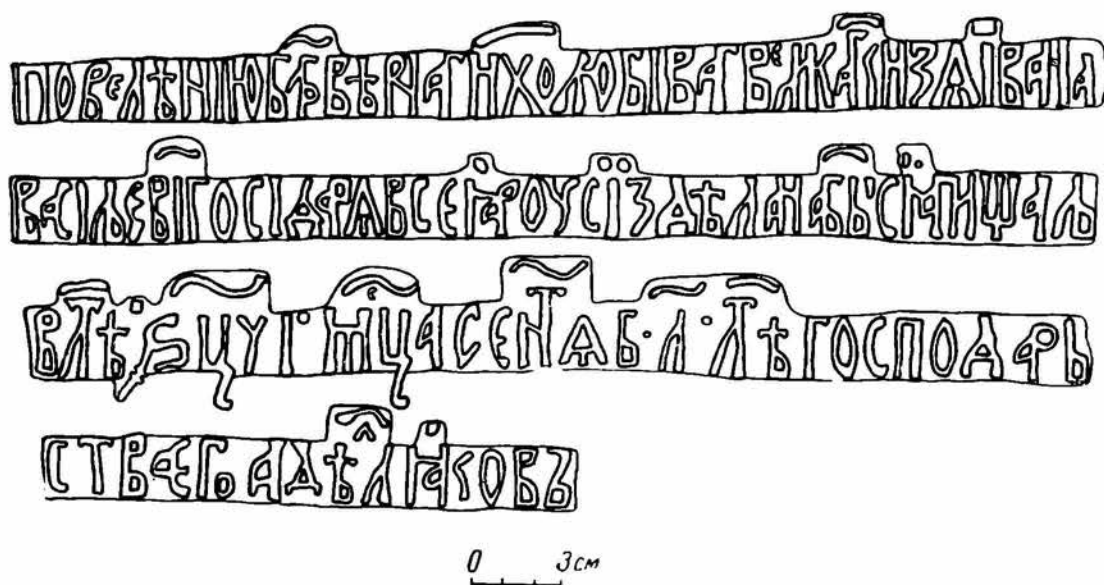 ПОВЕЛѢНІЮБЛГВѢРНАГИХОЛЮБІВАГВЕЛКАГКНЗАІВАНА
ВАСІЛЬЕВІГОСІДАРѦВСЕꙖРОУСІЗДѢЛАНАБЫСꙖПИЩАЛЬ
ВЛТѢ·҂ЅЦЧГ·МЦАСЕНТѦБ·Л·ЛѢГОСПОДАРЬ
СТВЕГОАДѢЛꙖКОВЪ
0 3 см